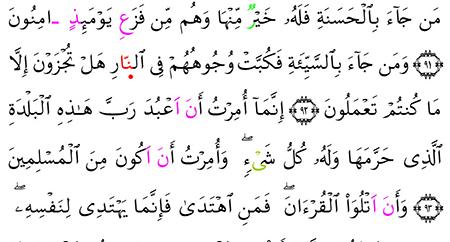 مَن جَآءَ بِالْحَسَنَةِ فَلَهُۥ خَيْرٌ مِّنْهَا وَهُم مِّن فَزَعِ يَوْمَئِذٍ ـ امِنُونَ
﴿٩١﴾ وَمَن جَآءَ بِالسَّيِّئَةِ فَكُبَّتْ وُجُوهُهُمْ فِى النَّارِ هَلْ تُجْزَوْنَ إِلَّا
مَا كُنتُمْ تَعْمَلُونَ ﴿٩٢﴾ إِنَّمَآ أُمِرْتُ أَنَ اَعْبُدَ رَبَّ هَـٰذِهِ الْبَلْدَةِ
الَّذِى حَرَّمَهَا وَلَهُۥ كُلُّ شَىْءٍ ۖ وَأُمِرْتُ أَنَ اَكُونَ مِنَ الْمُسْلِمِينَ
﴿٩٣﴾ وَأَنَ اَتْلُوَا۟ الْقُرْءَانَ ۖ فَمَنِ اهْتَدَىٰ فَإِنَّمَا يَهْتَدِى لِنَفْسِهِۦ ۖ